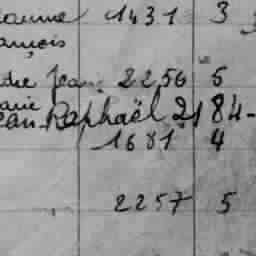 Jeanne 1431 3
François
André Jean 2256 5
Marie
Jean Raphaël 2184
1681 4
2257 5